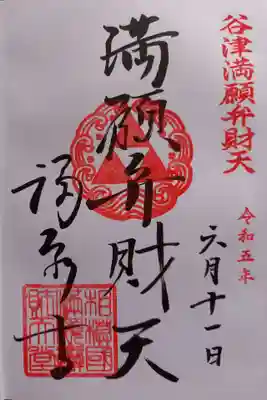 谷津満願弁財天
令和五年
六月十一日
満願弁財天
福泉寺